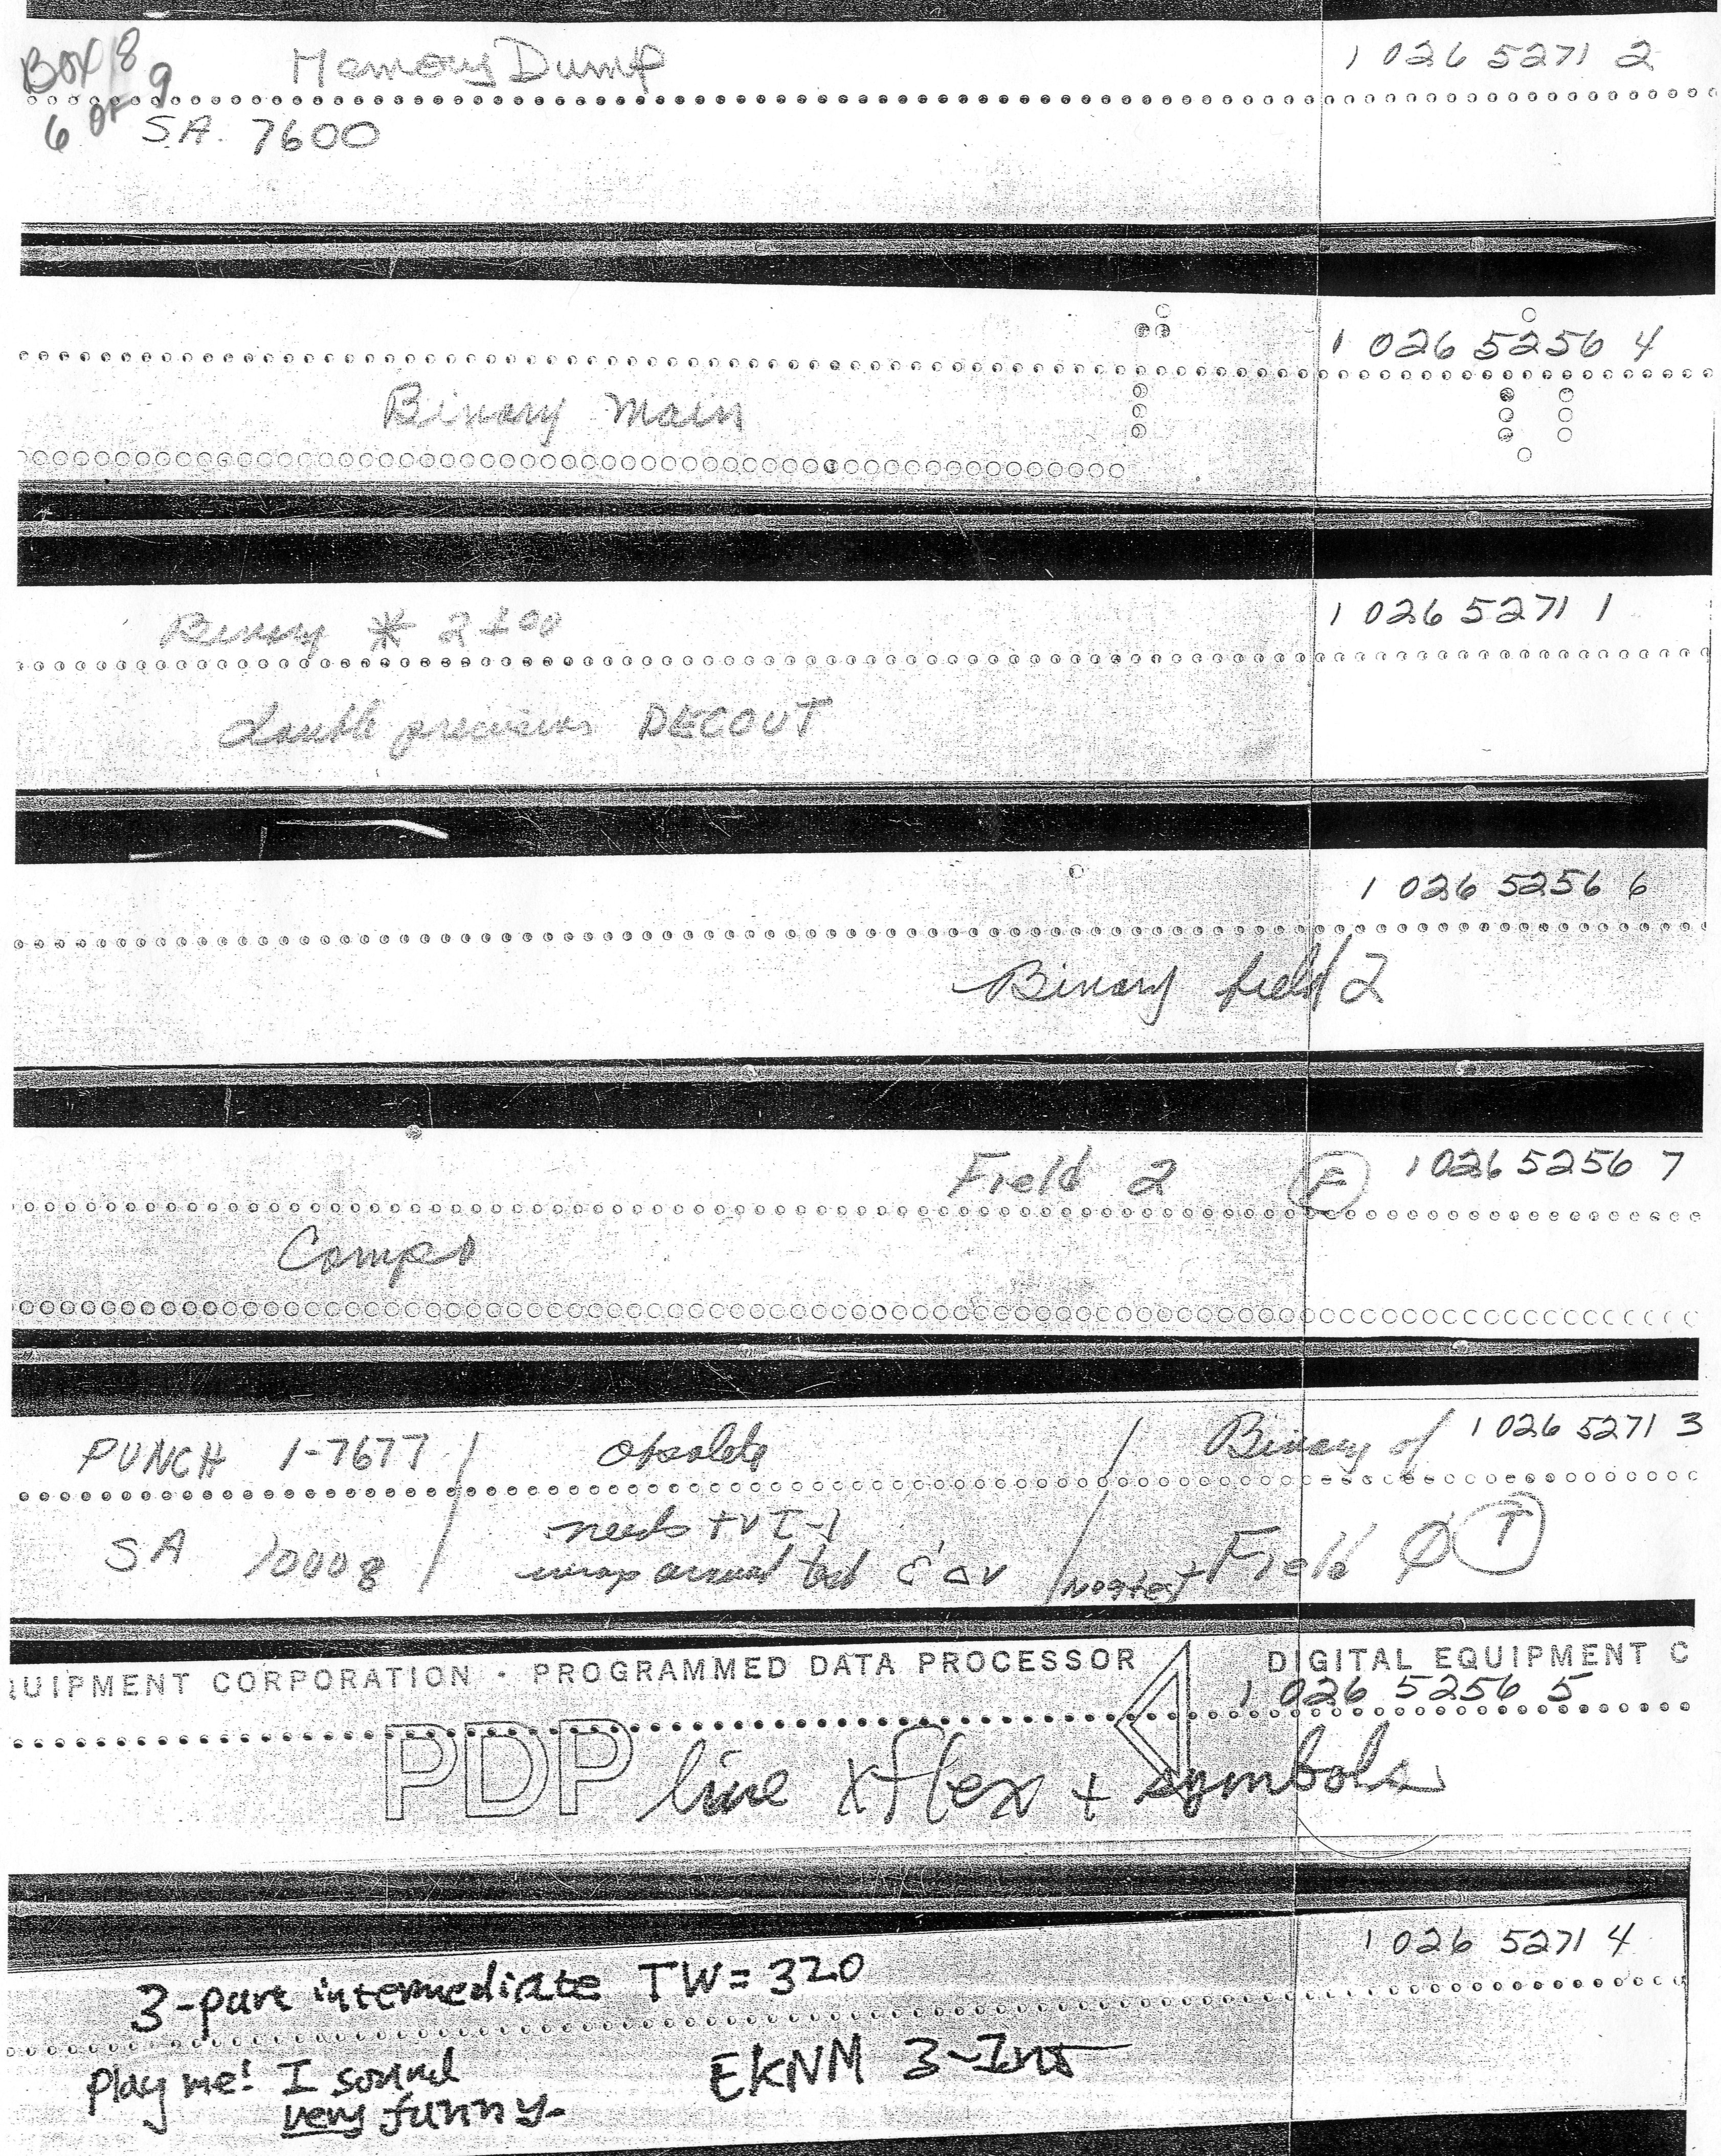 BOX 8 9
6 OF
Memory Dump
1 026 5271 2
S.A. 7600
1 026 5256 4
Binary Main
Binary * 2400
1 026 5271 1
double precision DECOUT
1 026 5256 6
Binary field 2
Field 2 F 1 026 5256 7
Compo
PUNCH 1-7677 / obsolete / Binary of 1 026 5271 3
SA 10008 / needs + V I-1
wrap around test & ΔV / Field Ø T
QUIPMENT CORPORATION · PROGRAMMED DATA PROCESSOR DIGITAL EQUIPMENT C
1 026 5256 5
PDP line xflex + symbols
1 026 5271 4
3-part intermediate TW = 320
play me! I sound
very funny.
EKNM 3-Int